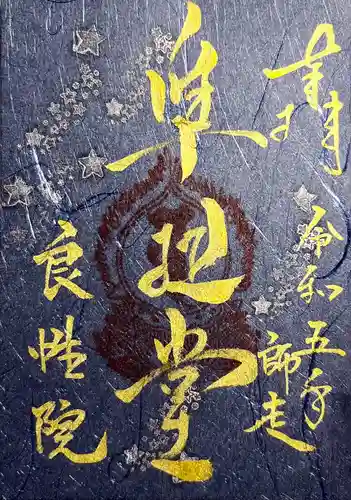 奉拝
令和五年
師走
準提堂
良性院